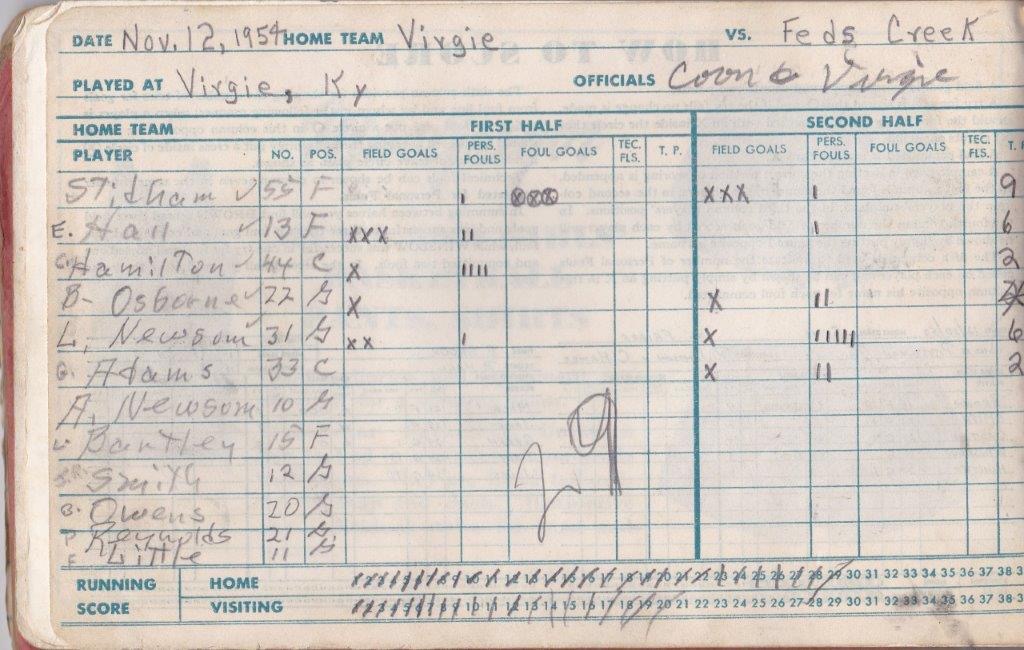 DATE Nov. 12, 1954 HOME TEAM Virgie VS. Feds Creek
PLAYED AT Virgie, Ky OFFICIALS Coon & Virgie
HOME TEAM FIRST HALF SECOND HALF
PLAYER NO. POS. FIELD GOALS PERS. FOULS FOUL GOALS TEC. FLS. T. P. FIELD GOALS PERS. FOULS FOUL GOALS TEC. FLS. T. P
Stidham ✓ 55 F I XXX XXX I 9
E. Hall ✓ 13 F XXX II I 6
Hamilton ✓ 44 C X IIII 2
B- Osborne ✓ 22 G X X II
L. Newsom ✓ 31 G XX I X IIIII 6
G. Adams 33 C X II 2
A. Newsom 10 G
Bartley 15 F
Smith 12 G
B. Owens 20 G
Reynolds 21 G
E Little 11 G
RUNNING SCORE HOME 12 14 15 16 17 18 19 20 21 22 23 24 25 26 27 28 29 30 31 32 33 34 35 36 37 38
VISITING 8 9 10 11 12 13 14 15 16 17 18 19 20 21 22 23 24 25 26 27 28 29 30 31 32 33 34 35 36 37 38